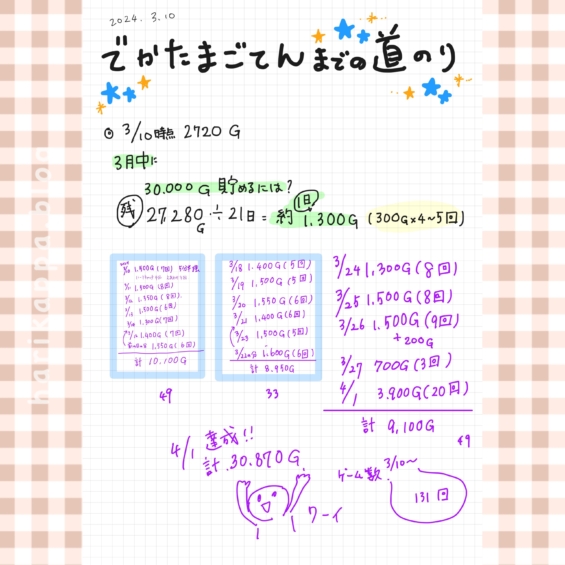 2024. 3.10
でかたまごてんまでの道のり
3/10時点 2720 G
3月中に
30.000 G 貯めるには?
残 27,280 G ÷ 21日 = 約 1日 1.300G (300G×4~5回)
1.500G (7回)
(8回)
1.550G (8回)
(6回)
1.300G (7回)
1.400G (7回)
1.550G (6回)
計 10.100G
49
3/18 1.400G (5回)
3/19 1.500G (5回)
3/20 1.550G (6回)
3/21 1.400G (6回)
1.500G (5回)
1.600G (6回)
計 8.950G
33
3/24 1,300G (8回)
3/25 1.500G (8回)
3/26 1.500G (9回)
+200G
3/27 700G (3回)
4/1 3.900G (20回)
計 9,100G
49
4/1 達成!!
計 30.870G
ワーイ
ゲーム数 3/10~
131回
harikanpa blog